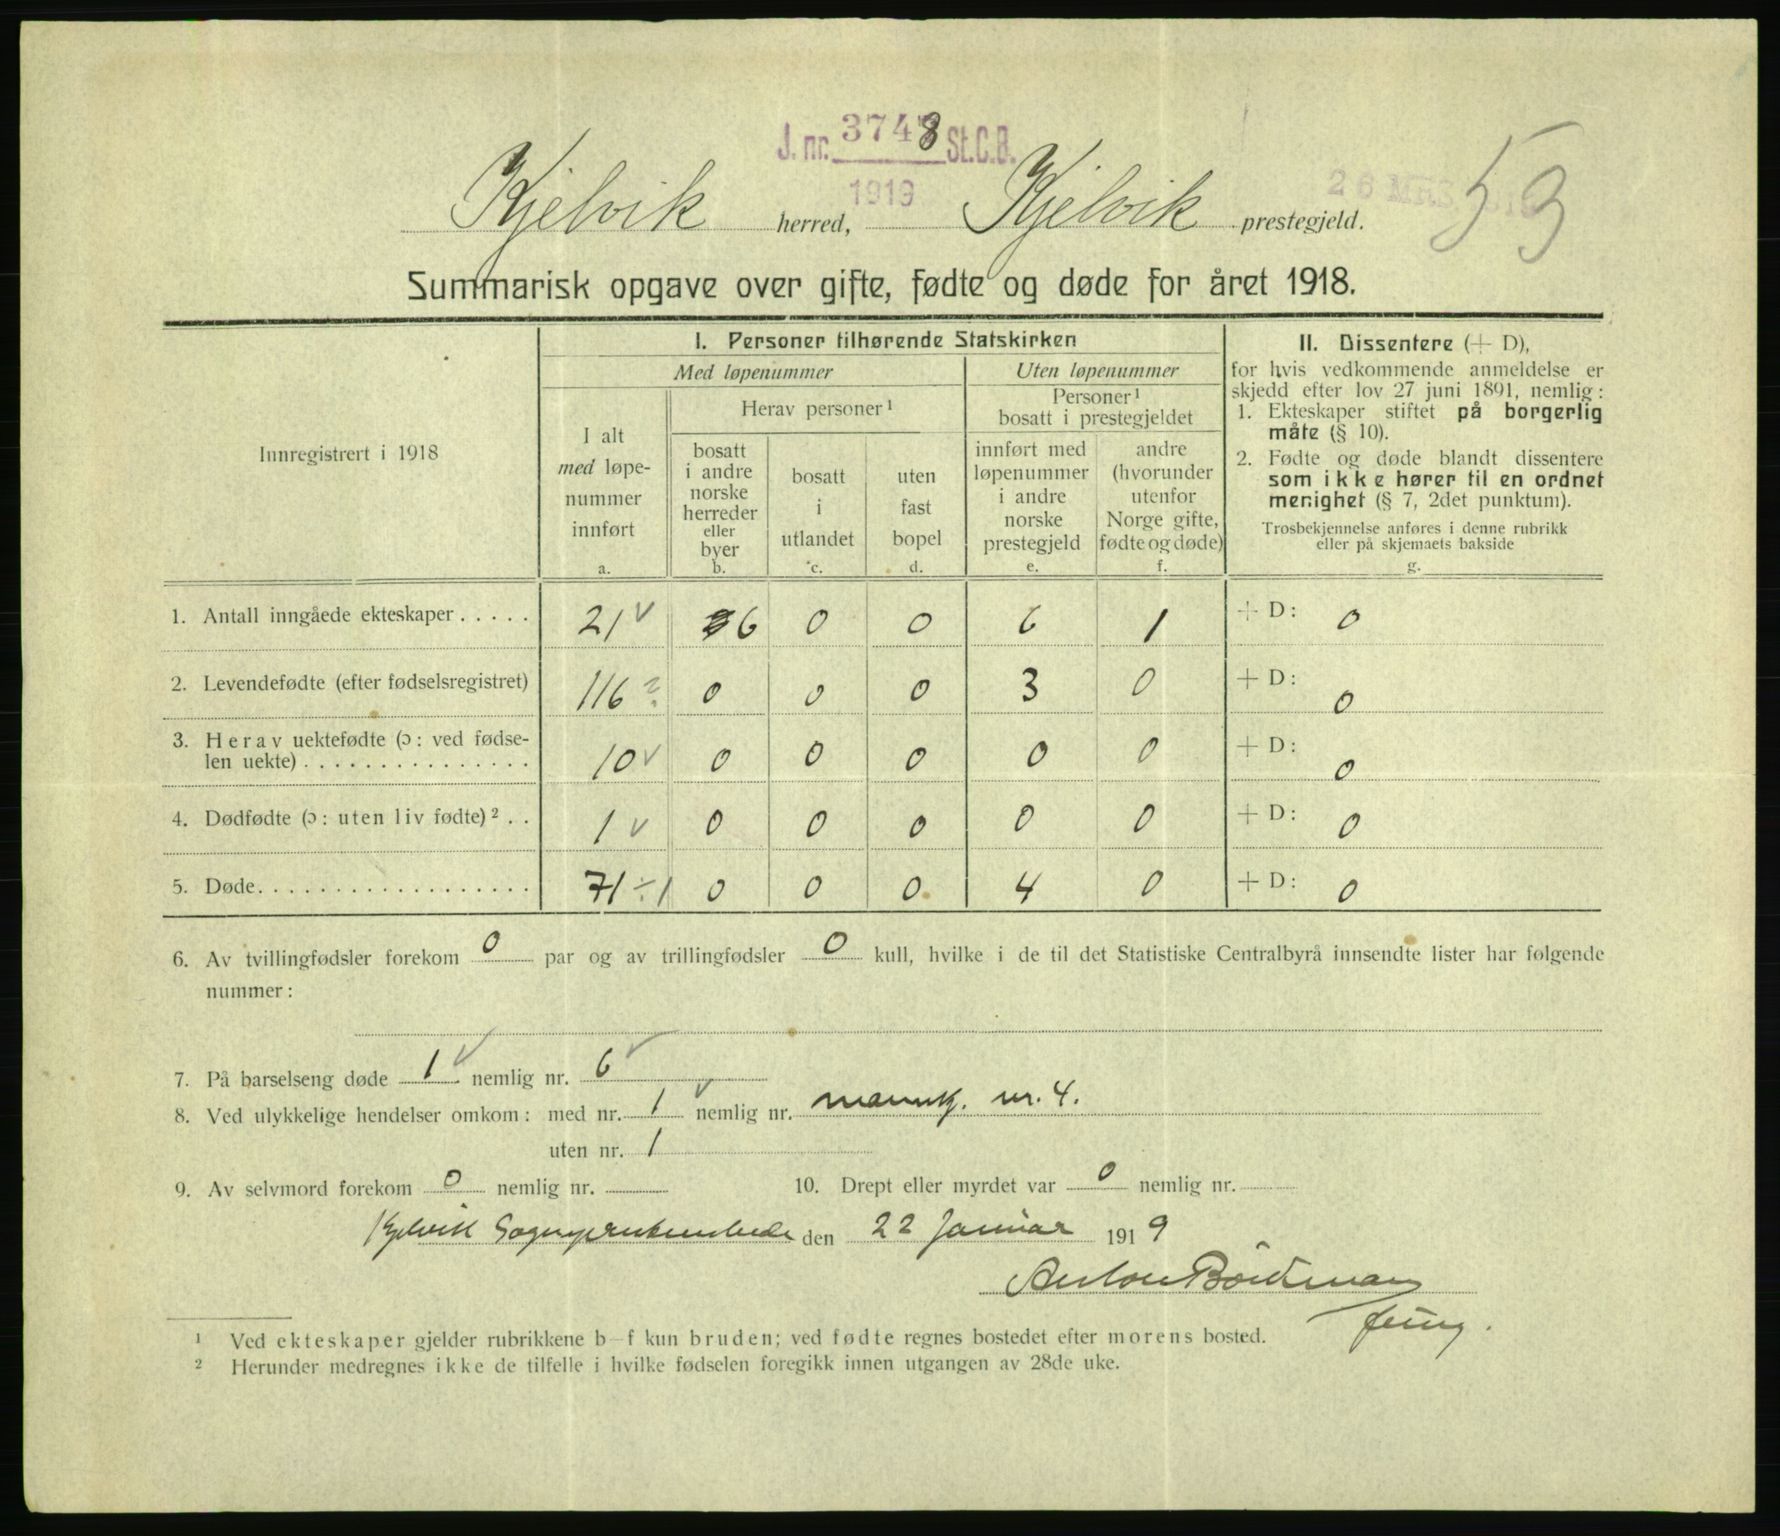 J. nr. 3748 St.C.B.
1919
26 MRS. 1919
53
Kjelvik herred, Kjelvik prestegjeld.
Summarisk opgave over gifte, fødte og døde for året 1918.
Innregistrert i 1918
I. Personer tilhørende Statskirken
Med løpenummer
Uten løpenummer
I alt
med løpe-
nummer
innført
a.
Herav personer ¹
bosatt
i andre
norske
herreder
eller
byer
b.
bosatt
i
utlandet
c.
uten
fast
bopel
d.
Personer ¹
bosatt i prestegjeldet
innført med
løpenummer
i andre
norske
prestegjeld
e.
andre
(hvorunder
utenfor
Norge gifte,
fødte og døde)
f.
II. Dissentere (+ D),
for hvis vedkommende anmeldelse er
skjedd efter lov 27 juni 1891, nemlig:
1. Ekteskaper stiftet på borgerlig
måte (§ 10).
2. Fødte og døde blandt dissentere
som ikke hører til en ordnet
menighet (§ 7, 2det punktum).
Trosbekjennelse anføres i denne rubrikk
eller på skjemaets bakside
g.
1. Antall inngåede ekteskaper . . . . . 21 ✓ 6 0 0 6 1 + D: 0
2. Levendefødte (efter fødselsregistret) 116 ? 0 0 0 3 0 + D: 0
3. Herav uektefødte (ɔ: ved fødse-
len uekte) . . . . . . . . . . . . . . . 10 ✓ 0 0 0 0 0 + D: 0
4. Dødfødte (ɔ: uten liv fødte) ² . . 1 ✓ 0 0 0 0 0 + D: 0
5. Døde. . . . . . . . . . . . . . . . . . 71 ÷ 1 0 0 0 4 0 + D: 0
6. Av tvillingfødsler forekom 0 par og av trillingfødsler 0 kull, hvilke i de til det Statistiske Centralbyrå innsendte lister har følgende
nummer:
7. På barselseng døde 1 ✓ nemlig nr. 6 ✓
8. Ved ulykkelige hendelser omkom: med nr. 1 ✓ nemlig nr. mannkj. nr. 4.
uten nr. 1
9. Av selvmord forekom 0 nemlig nr.
10. Drept eller myrdet var 0 nemlig nr.
Kjelvik Sogneprestembede den 22 Januar 1919
¹ Ved ekteskaper gjelder rubrikkene b–f kun bruden; ved fødte regnes bostedet efter morens bosted.
² Herunder medregnes ikke de tilfelle i hvilke fødselen foregikk innen utgangen av 28de uke.